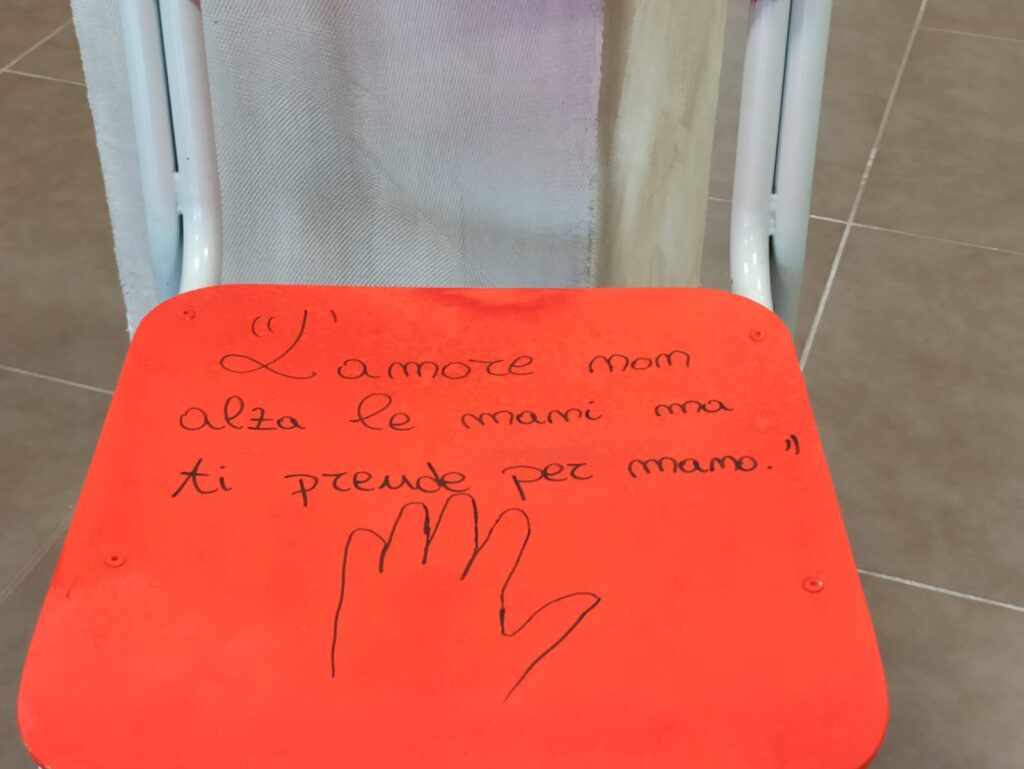 "L'amore non
alza le mani ma
ti prende per mano."